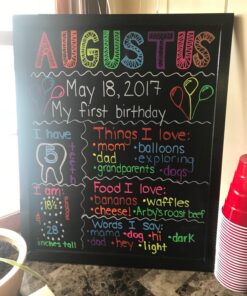 AUGUSTUS
May 18, 2017
My first birthday
I have
5
teeth
Things I love:
• mom • balloons
• dad exploring
• grandparents • dogs
I am:
18½
pounds
28
inches tall
Food I love:
• bananas • waffles
• cheese! • Arby's roast beef
Words I say:
• mama • dog • hi • dark
• dad • hey • light